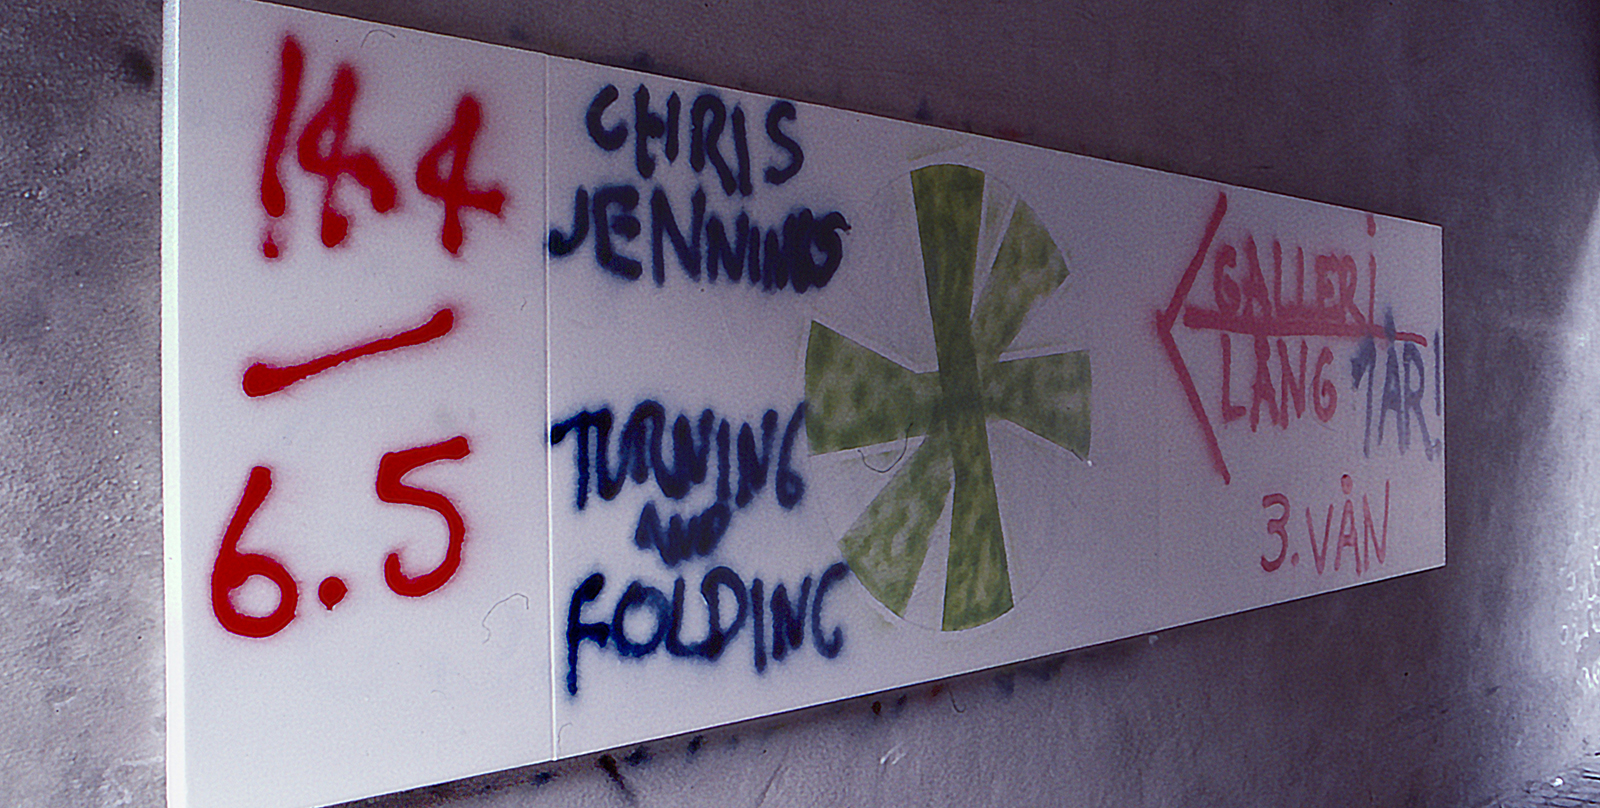 14.4
—
6.5
CHRIS
JENNINGS
TURNING
AND
FOLDING
GALLERI
LÅNG 1ÅR!
3.VÅN